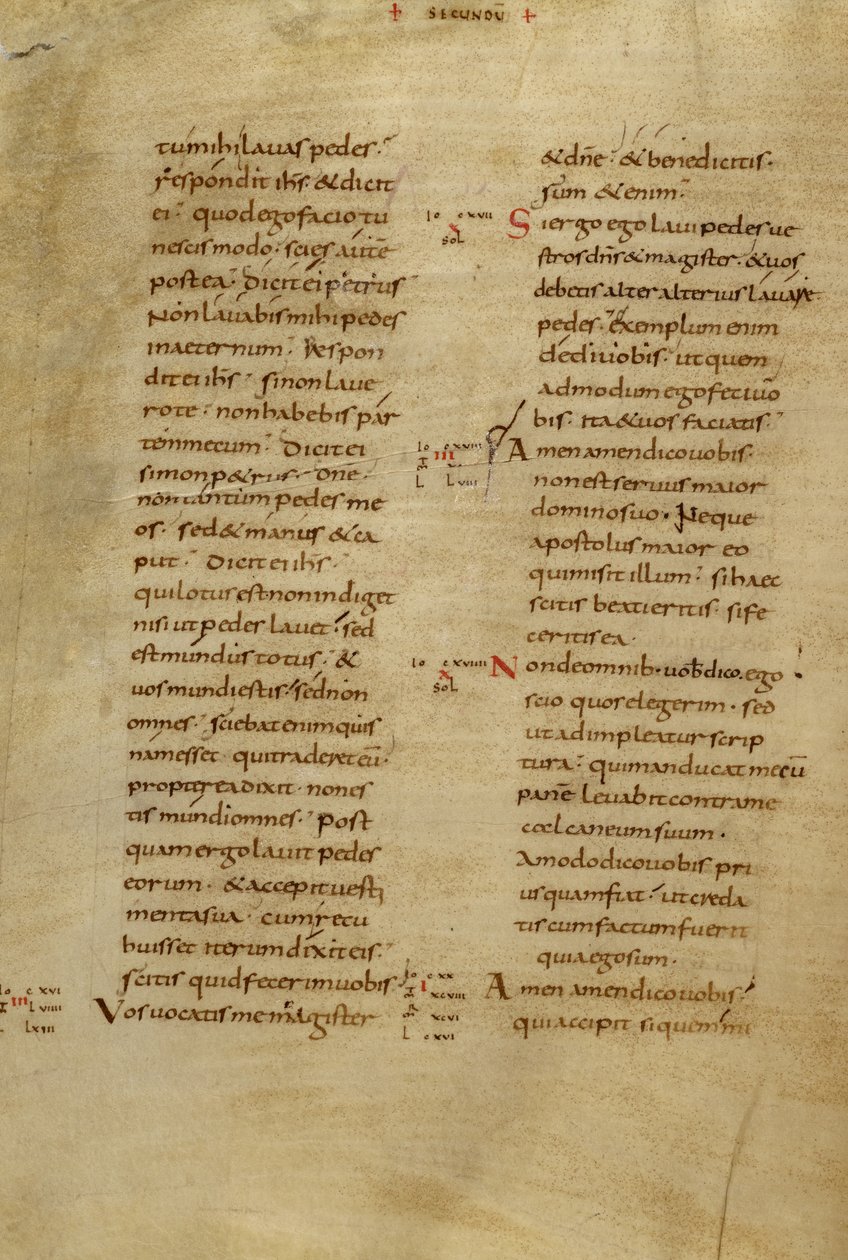 + SECUNDŪ +
tu mihi lavas pedes·
respondit ihs̄· & dicit
ei· quod ego facio tu
nescis modo· scies autē
postea· Dicit ei petrus
Non lavabis mihi pedes
in aeternum· Respon
dit ei ihs̄· si non lave
ro te· non habebis par
tem mecum· Dicit ei
simon p&rus· Dn̄e·
non tantum pedes me
os· sed & manus & ca
put· Dicit ei ihs̄·
qui lotus est non indiget
nisi ut peder lavet· sed
est mundus totus· &
vos mundi estis· sed non
omnes· sciebat enim quis
nam esset qui traderet eū·
propterea dixit· non es
tis mundi omnes· Post
quam ergo lavit pedes
eorum· & accepit vesti
menta sua· cum recu
buisset iterum dixit eis·
scitis quid fecerim vobis
Io c xvi
m L viiii
L Lxiii
Vos vocatis me magister
& dn̄e· & benedicitis·
sum & enim·
Io c xvii
x
soL
Si ergo ego lavi pedes ve
stros dn̄s & magister· & vos
debetis alter alterius lavare
pedes· exemplum enim
dedi vobis· ut quem
admodum ego feci vo
bis· ita & vos faciatis·
Io c xviii
m
L Lviii
Amen amen dico vobis·
non est servus maior
domino suo· Neque
apostolus maior eo
qui misit illum· si haec
scitis beati eritis· si fe
ceritis ea·
Io c xviiii
x
soL
Non de omnib· vob̄ dico· ego
scio quos elegerim· sed
ut adimpleatur scrip
tura· qui manducat mecū
panē levabit contra me
calcaneum suum·
Amodo dico vobis pri
us quam fiat· ut creda
tis cum factum fuerit
quia ego sum·
Io c xx
I xcviii
m xcvi
L c xvi
Amen amen dico vobis·
qui accipit si quem mi